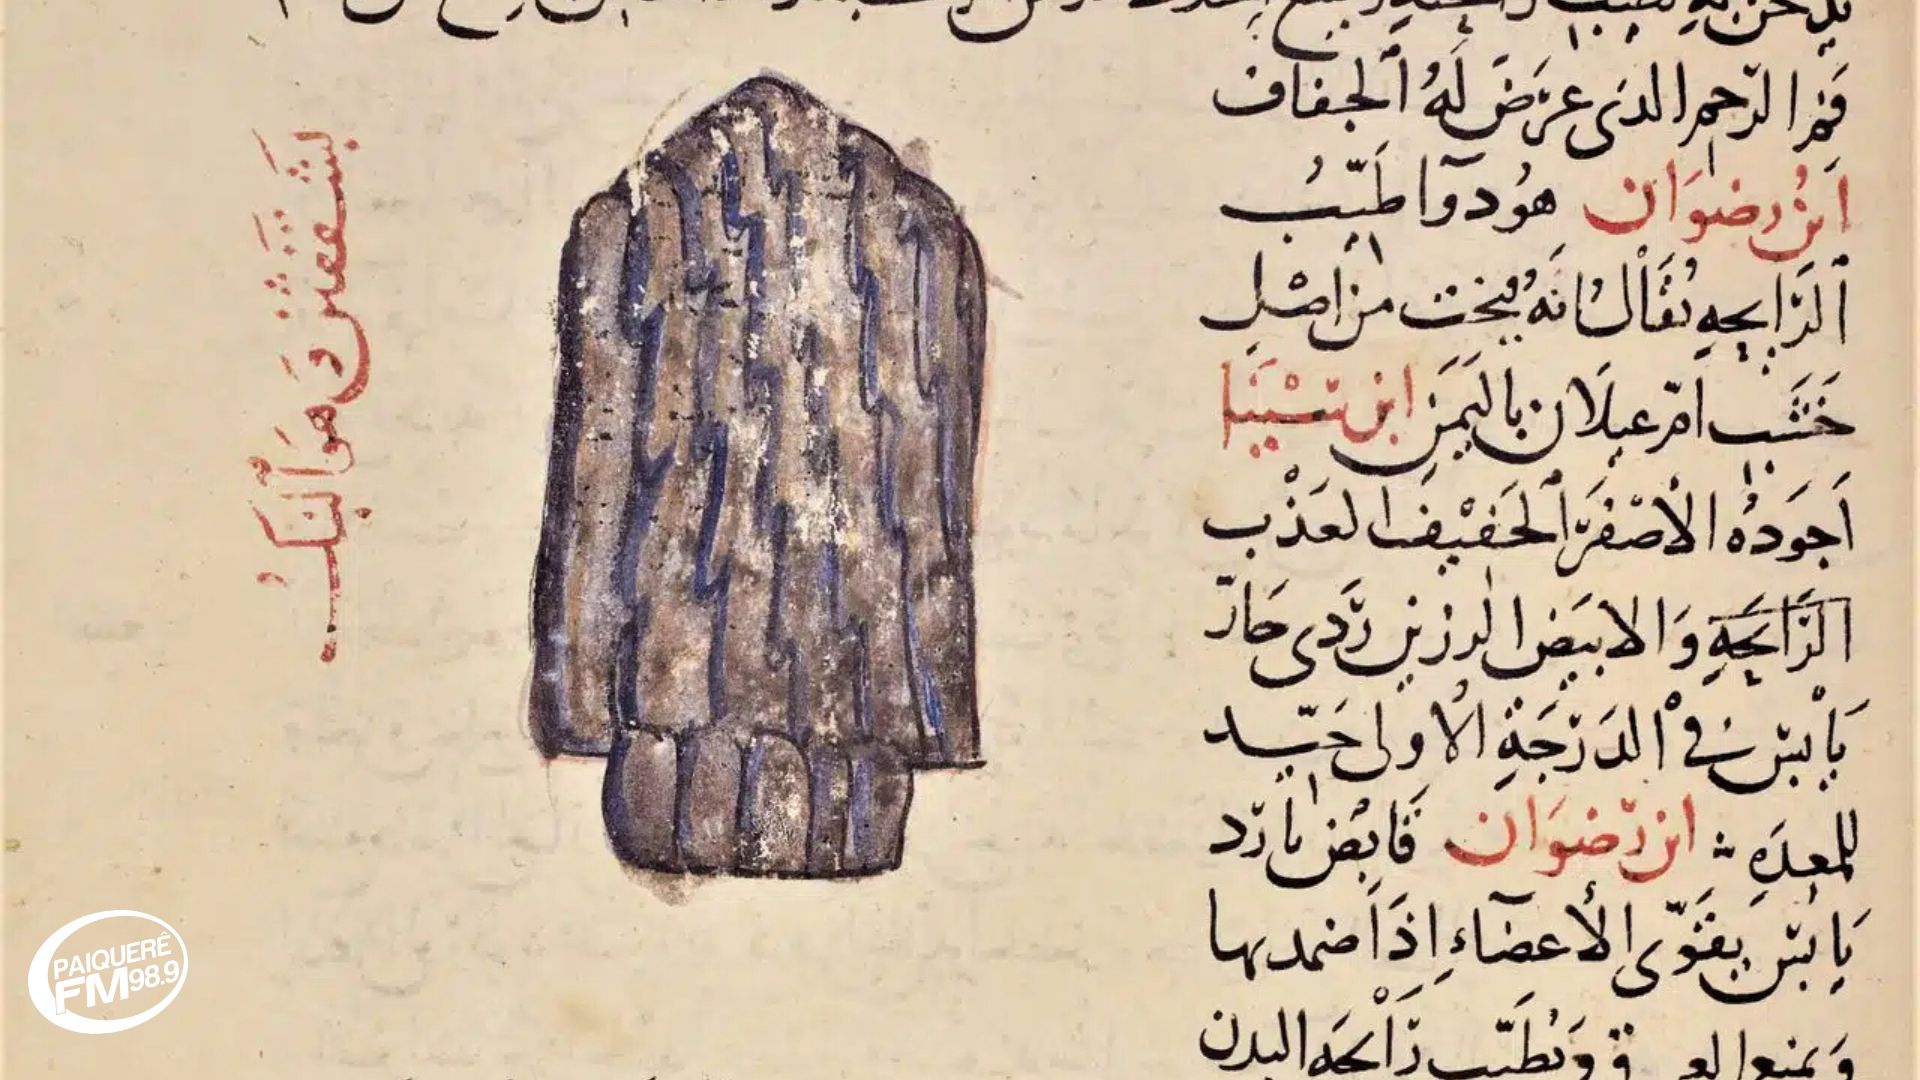 فم الرحم الذى عرض له الجفاف
ابن رضوان هو دوا طيب
الرايحه يقال انه ينحت من اصل
خشب ام غيلان باليمن ابن سينا
اجوده الاصفر الخفيف العذب
الرايحة والابيض الرزين ردى حار
يابس فى الدرجة الاولى جيد
للمعده ابن رضوان قابض بارد
يابس يقوى الأعضاء إذا ضمد بها
ويطيب رايحه البدن
وهو البنك
PAIQUERÊ
FM 98.9